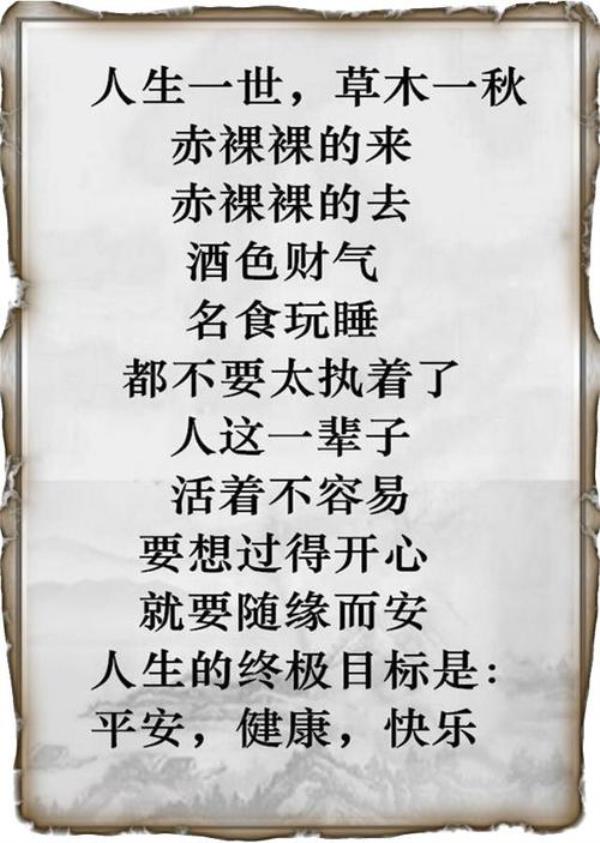 人生一世，草木一秋
赤裸裸的来
赤裸裸的去
酒色财气
名食玩睡
都不要太执着了
人这一辈子
活着不容易
要想过得开心
就要随缘而安
人生的终极目标是：
平安，健康，快乐